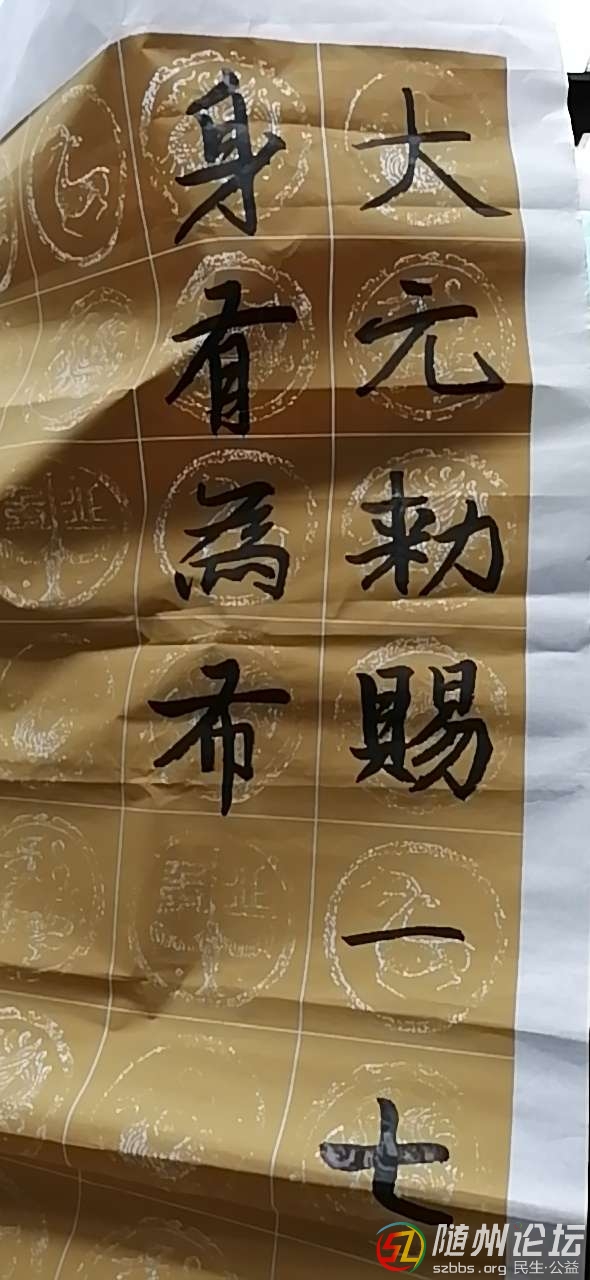 大元勅賜一七
身有為布
随州论坛
szbbs.org 民生·公益